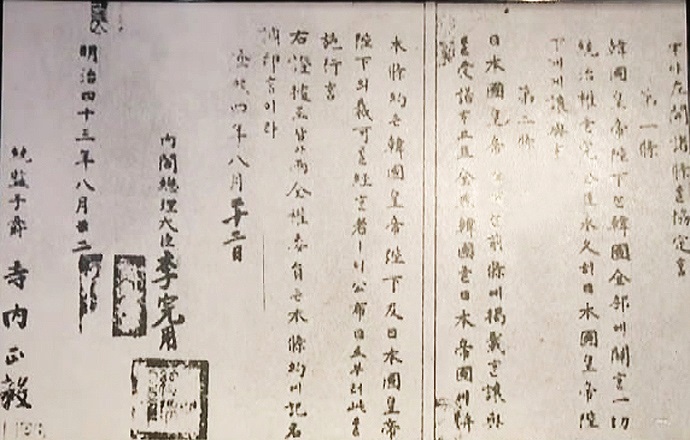 左開諸條를協定홈
第一條
韓國皇帝陛下는韓國全部에關한一切
統治權을完全且永久히日本國皇帝陛
下에게讓與홈
第二條
日本國皇帝陛下는前條에揭載한讓與
를受諾하고且全然韓國을日本帝國에併
本條約은韓國皇帝陛下及日本國皇帝
陛下의裁可를經한者이니公布日로부터此를
施行홈
右證據로삼아兩全權委員은本條約에記名
調印홈이라
隆熙四年八月二十二日
內閣總理大臣李完用
明治四十三年八月廿二
統監子爵寺內正毅